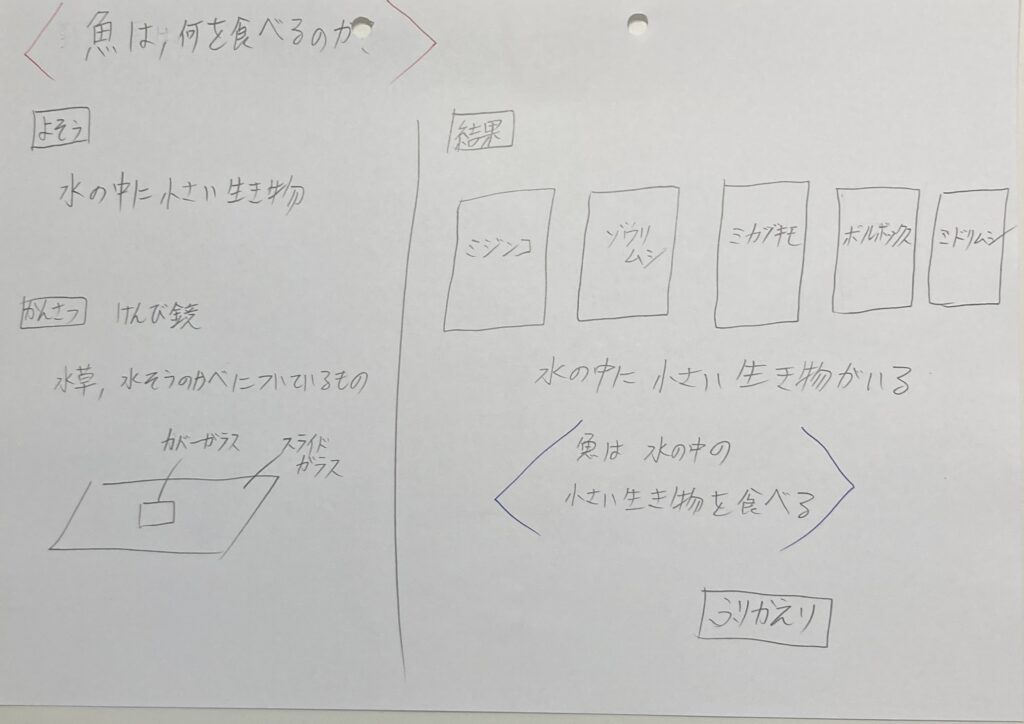 魚は,何を食べるのか、
よそう
水の中に小さい生き物
かんさつ けんび鏡
水草,水そうのかべについているもの
カバーガラス
スライド
ガラス
結果
ミジンコ
ゾウリ
ムシ
ミカヅキモ
ボルボックス
ミドリムシ
水の中に小さい生き物がいる
魚は水の中の
小さい生き物を食べる
ふりかえり